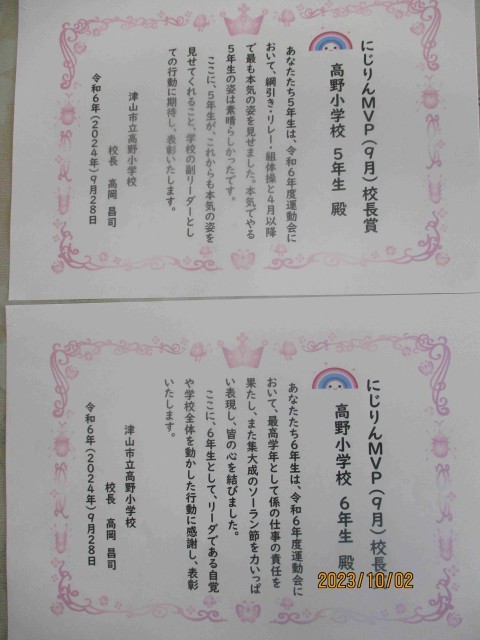 にじりんMVP(9月)校長賞
高野小学校 5年生 殿
あなたたち5年生は、令和6年度運動会に
おいて、綱引き・リレー・組体操と4月以降
で最も本気の姿を見せました。本気でやる
5年生の姿は素晴らしかったです。
ここに、5年生が、これからも本気の姿を
見せてくれること、学校の副リーダーとし
ての行動に期待し、表彰いたします。
津山市立高野小学校
校長 高岡 昌司
令和6年(2024年)9月28日
にじりんMVP(9月)校長賞
高野小学校 6年生 殿
あなたたち6年生は、令和6年度運動会に
おいて、最高学年として係の仕事の責任を
果たし、また集大成のソーラン節を力いっぱ
い表現し、皆の心を結びました。
ここに、6年生として、リーダである自覚
や学校全体を動かした行動に感謝し、表彰
いたします。
津山市立高野小学校
校長 高岡 昌司
令和6年(2024年)9月28日
2023/10/02